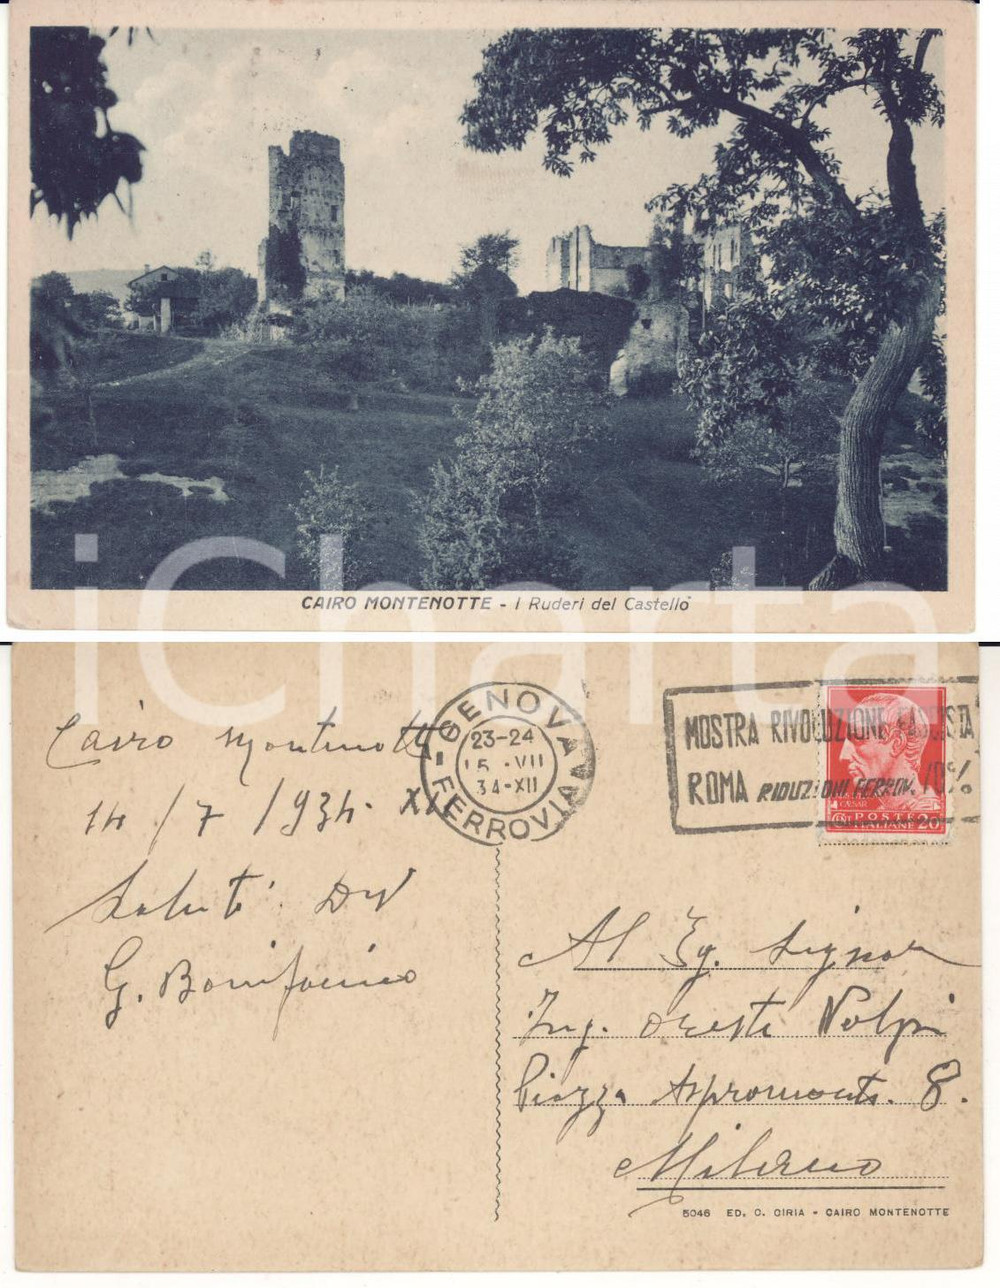 CAIRO MONTENOTTE - I Ruderi del Castello
iCharta
Cairo Montenotte
14/7/934. XII
Saluti. Dev
G. Bonifacino
GENOVA
23-24
15.VII
34-XII
FERROVIA
MOSTRA RIVOLUZIONE FASCISTA
ROMA RIDUZIONI FERROV. 70%
CAESAR
POSTE
ITALIANE 20
Al Eg. Signor
Ing. Oreste Volpi
Piazza Aspromonte. 8.
Milano
5046 ED. C. CIRIA - CAIRO MONTENOTTE